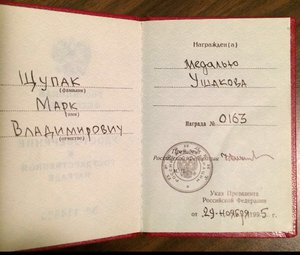 Щупак
(фамилия)
Марк
(имя)
Владимирович
(отчество)
Награжден(а)
медалью
Ушакова
Награда № 0163
Президент
Российской Федерации
Указ Президента
Российской Федерации
от „29“ ноября 1995 г.